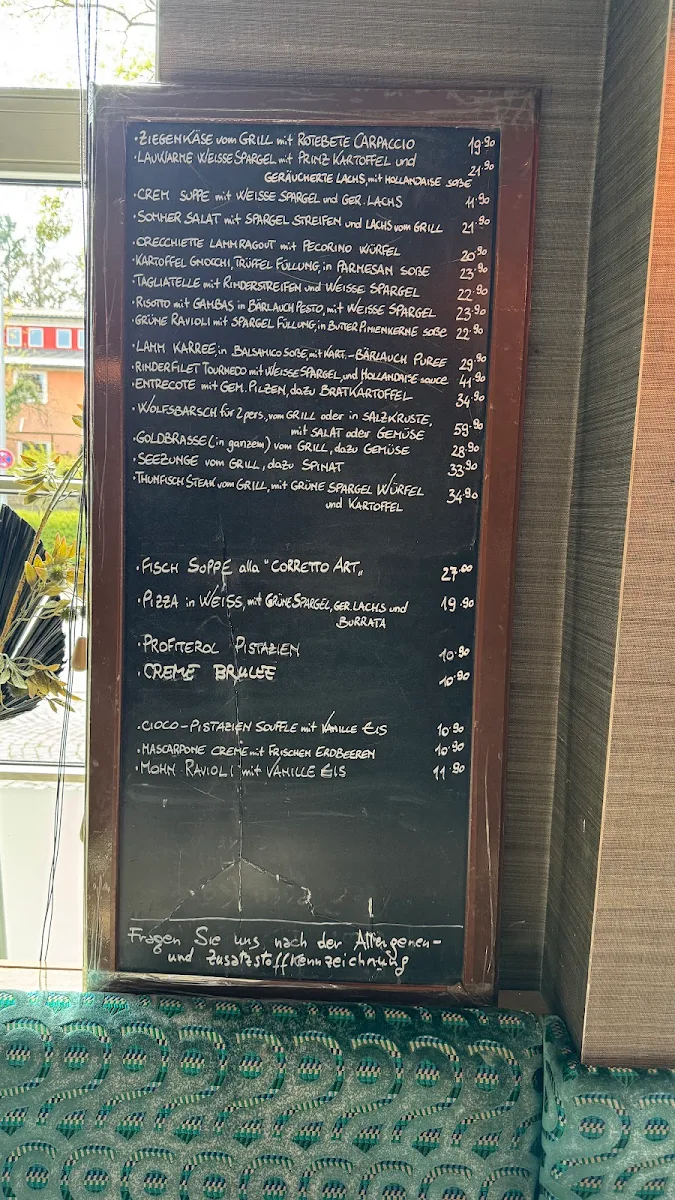 ·ZIEGENKÄSE vom GRILL mit ROTEBETE CARPACCIO 19.90
·LAUWARME WEISSE SPARGEL mit PRINZ KARTOFFEL und
GERÄUCHERTE LACHS, mit HOLLANDAISE SOßE 21.90
·CREM SUPPE mit WEISSE SPARGEL und GER. LACHS 11.90
·SOMMER SALAT mit SPARGEL STREIFEN und LACHS vom GRILL 21.90
·ORECCHIETTE LAMMRAGOUT mit PECORINO WÜRFEL 20.90
·KARTOFFEL GNOCCHI, TRÜFFEL FÜLLUNG, in PARMESAN SOßE 23.90
·TAGLIATELLE mit RINDERSTREIFEN und WEISSE SPARGEL 22.90
·RISOTTO mit GAMBAS in BÄRLAUCH PESTO, mit WEISSE SPARGEL 23.90
·GRÜNE RAVIOLI mit SPARGEL FÜLLUNG, in BUTER PINIENKERNE SOßE 22.90
·LAMM KARREE, in BALSAMICO SOßE, mit KART.-BÄRLAUCH PUREE 29.90
·RINDERFILET TOURNEDO mit WEISSE SPARGEL, und HOLLANDAISE SAUCE 41.90
·ENTRECOTE mit GEM. PILZEN, dazu BRATKARTOFFEL 34.90
·WOLFSBARSCH für 2 pers, vom GRILL oder in SALZKRUSTE,
mit SALAT oder GEMÜSE 59.90
·GOLDBRASSE (in ganzem) vom GRILL, dazu GEMÜSE 28.90
·SEEZUNGE vom GRILL, dazu SPINAT 33.90
·THUNFISCH STEAK vom GRILL, mit GRÜNE SPARGEL WÜRFEL 34.90
und KARTOFFEL
·FISCH SUPPE alla "CORRETTO ART„ 27.00
·PIZZA in WEISS, mit GRÜNE SPARGEL, GER. LACHS und 19.90
BURRATA
·PROFITEROL PISTAZIEN 10.90
·CREME BRULEE 10.90
·CIOCO-PISTAZIEN SOUFFLE mit VANILLE EIS 10.90
·MASCARPONE CREME mit FRISCHEN ERDBEEREN 10.90
·MOHN RAVIOLI mit VANILLE EIS 11.90
Fragen Sie uns nach der Allergenen-
und Zusatzstoffkennzeichnung